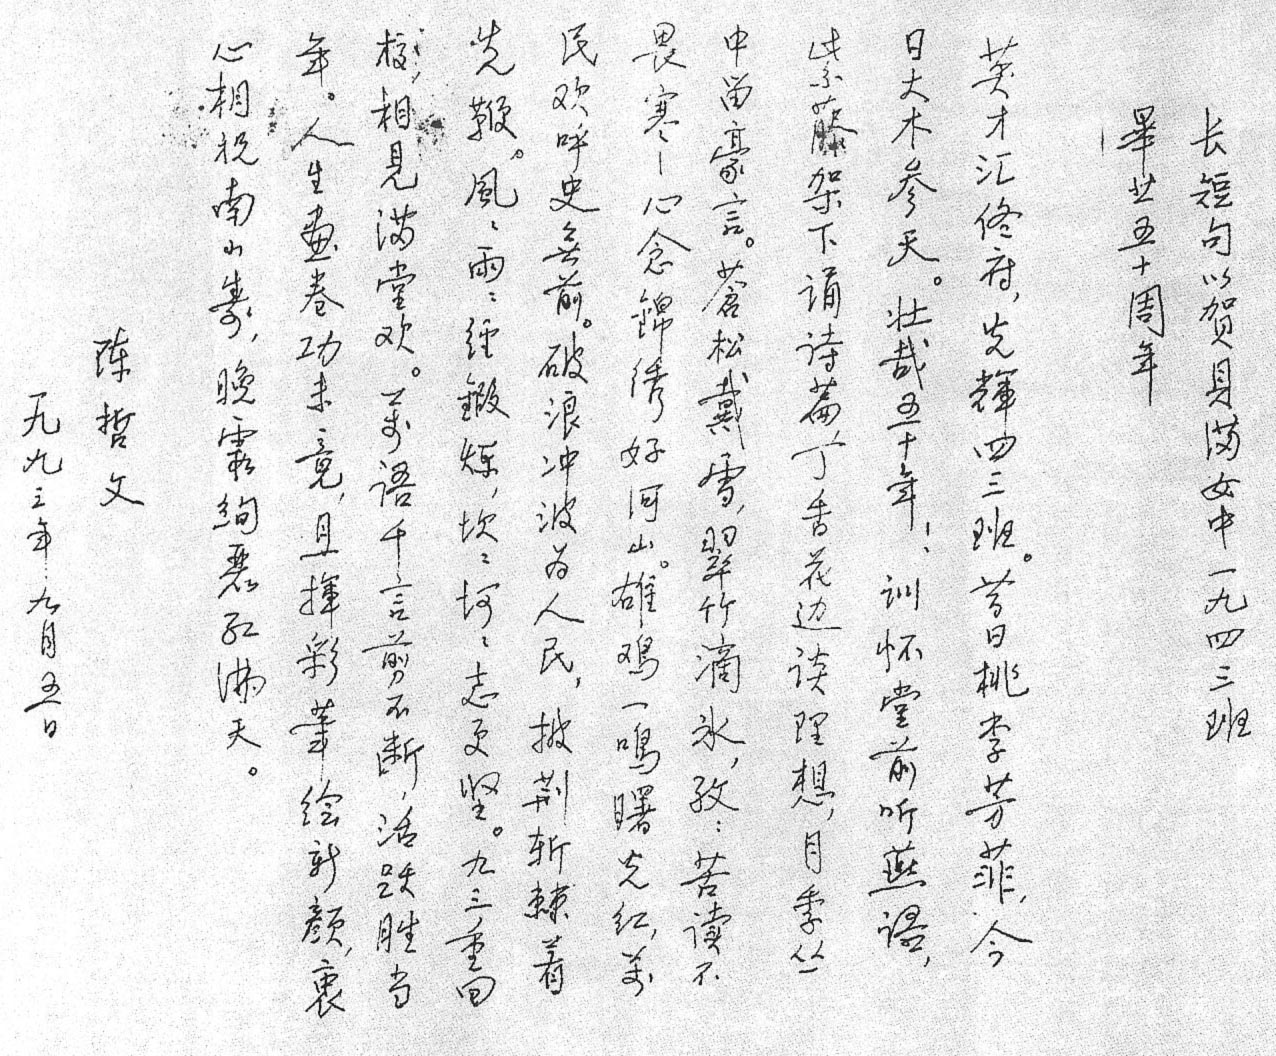 长短句以贺貝满女中一九四三班
畢业五十周年
英才汇佟府，光輝四三班。昔日桃李芳菲，今
日大木参天。壮哉五十年！训怀堂前听燕语，
紫藤架下诵诗篇，丁香花边谈理想，月季丛
中留豪言。蒼松戴雪，翠竹滴氷，孜：苦读不
畏寒—心念錦绣好河山。雄鸡一鳴曙光红，万
民欢呼史无前。破浪冲波为人民，披荆斩棘着
先鞭。風：雨：经鍛炼，坎：坷：志更坚。九三重回
校，相見满堂欢。万语千言剪不断，活跃胜当
年。人生画卷功未竟，且揮彩筆绘新颜，衷
心相祝南山寿，晚霞绚丽红满天。
陈哲文
一九九三年.九月五日